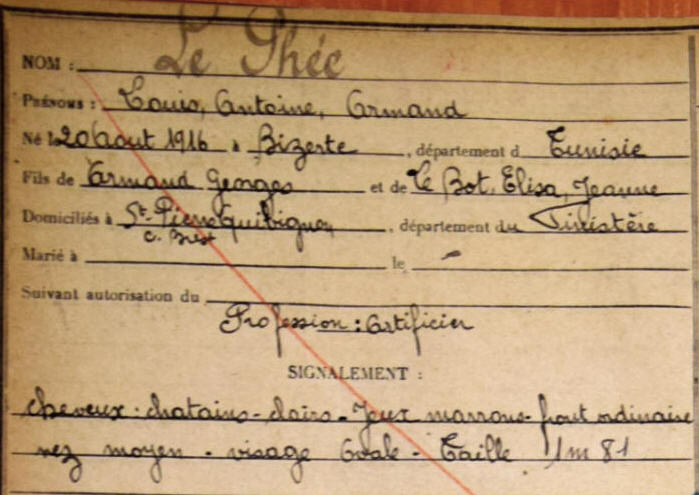 NOM : Le Phée
Prénoms : Louis, Antoine, Armand
Né le 20 Aout 1916 à Bizerte, département d Tunisie
Fils de Armand Georges et de Le Bot, Elisa, Jeanne
Domiciliés à St-Pierre quilbignon, département du Finistère
c. Brest
Marié à le -
Suivant autorisation du
Profession : Artificier
SIGNALEMENT :
cheveux : chatains - clairs - Yeux marrons - front ordinaire
nez moyen - visage Ovale - Taille 1m 81